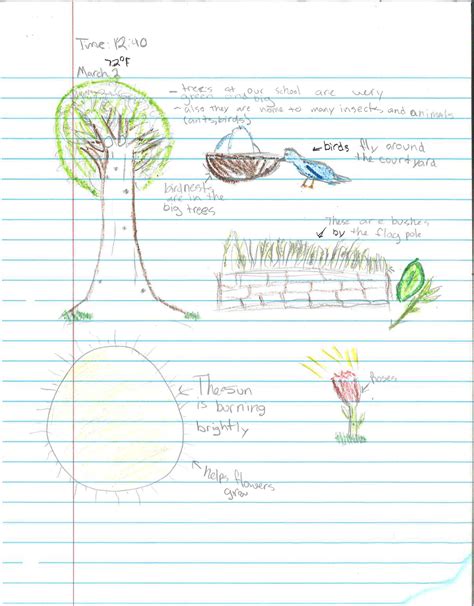 Time: 12:40
72°F
March 2
- trees at our school are very
green and big
- also they are home to many insects and animals
(ants, birds)
birds fly around
the courtyard
birdnests
are in the
big trees
These are bushes
by the flag pole
Roses
The sun
is burning
brightly
helps flowers
grow